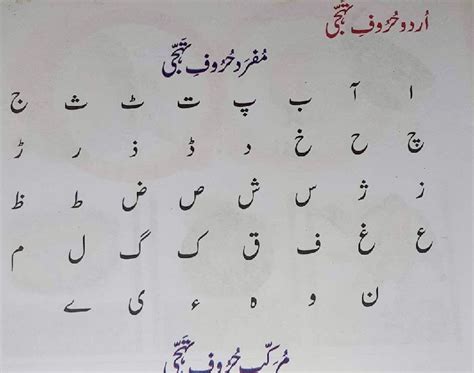 اُردو حُروفِ تہجّی
مُفرَد حُروفِ تہجّی
ا آ ب پ ت ٹ ث ج
چ ح خ د ڈ ذ ر ڑ
ز ژ س ش ص ض ط ظ
ع غ ف ق ک گ ل م
ن و ہ ء ی ے
مُرکّب حُروفِ تہجّی